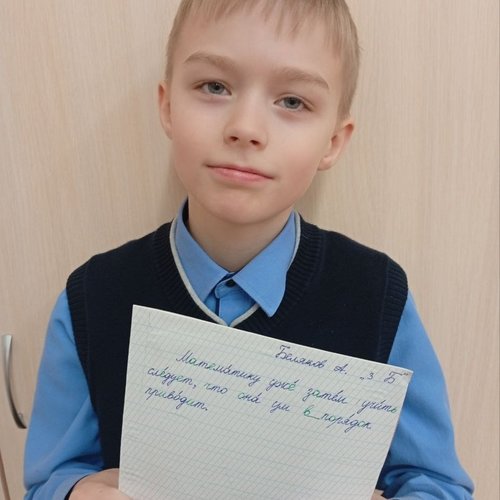 Беляков А. „3 Б"
Матема́тику уже́ зате́м учи́ть
сле́дует, что она́ ум в поря́док
приво́дит.